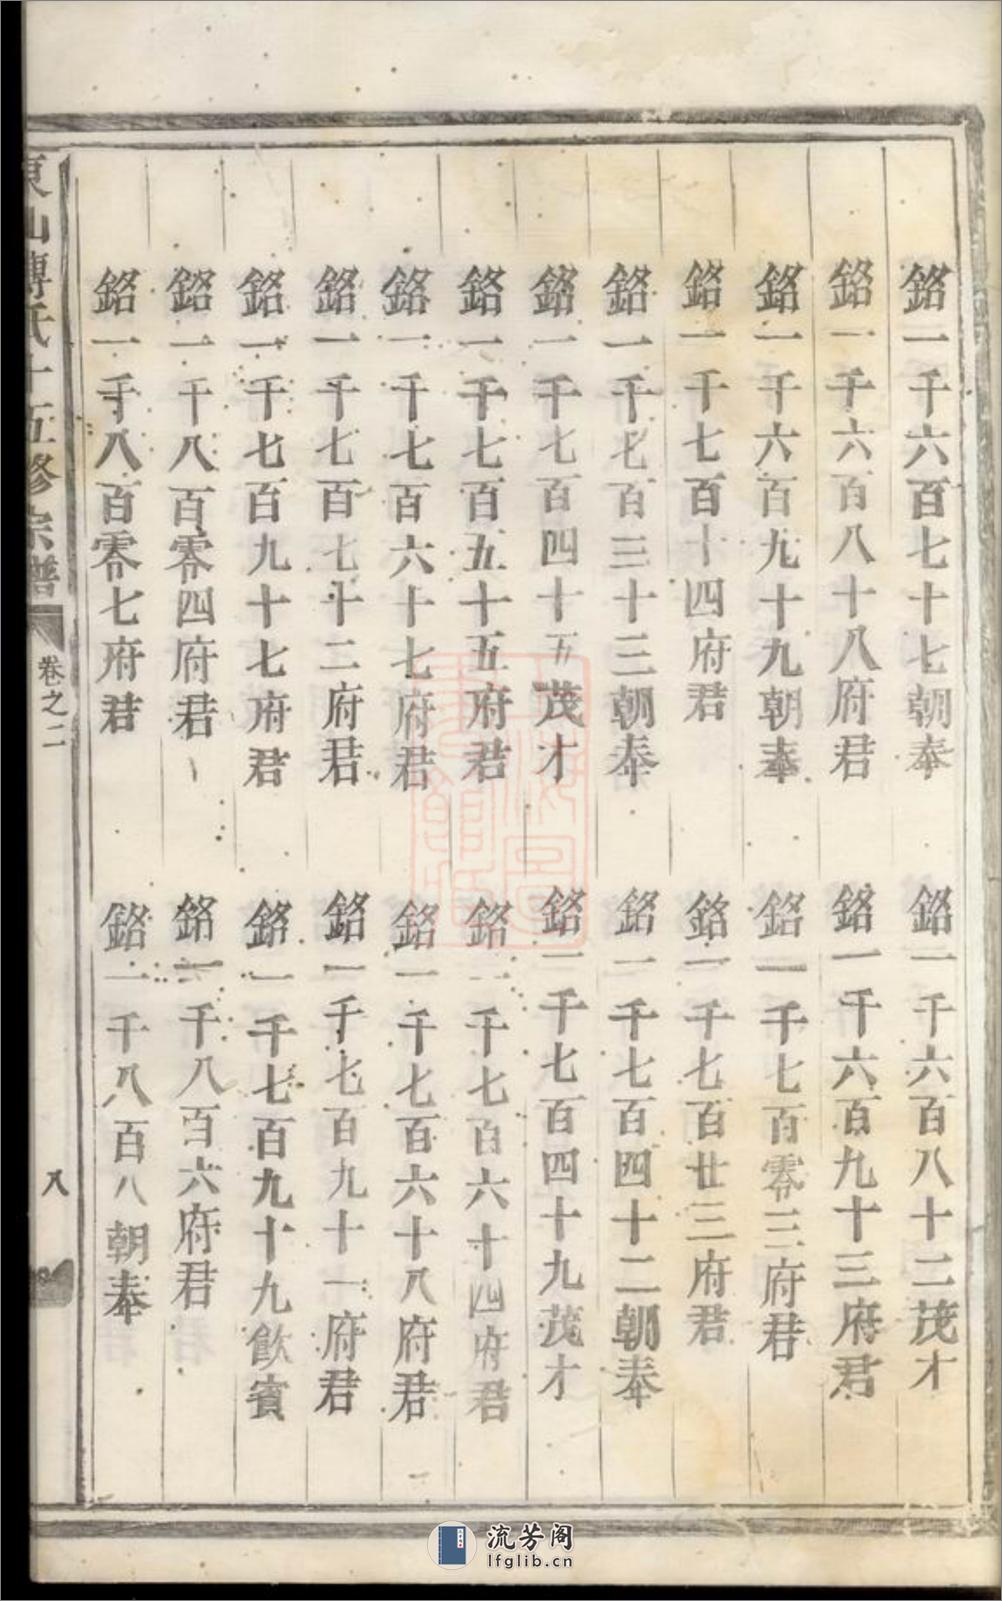 銘一千六百七十七朝奉
銘一千六百八十二茂才
銘一千六百八十八府君
銘一千六百九十三府君
銘一千六百九十九朝奉
銘一千七百零三府君
銘一千七百十四府君
銘一千七百廿三府君
銘一千七百三十三朝奉
銘一千七百四十二朝奉
銘一千七百四十五茂才
銘一千七百四十九茂才
銘一千七百五十五府君
銘一千七百六十四府君
銘一千七百六十七府君
銘一千七百六十八府君
銘一千七百七十二府君
銘一千七百九十一府君
銘一千七百九十七府君
銘一千七百九十九飲賓
銘一千八百零四府君
銘一千八百六府君
銘一千八百零七府君
銘一千八百八朝奉
東山傅氏十五修宗譜
卷之二
八
流芳阁
lfglib.cn